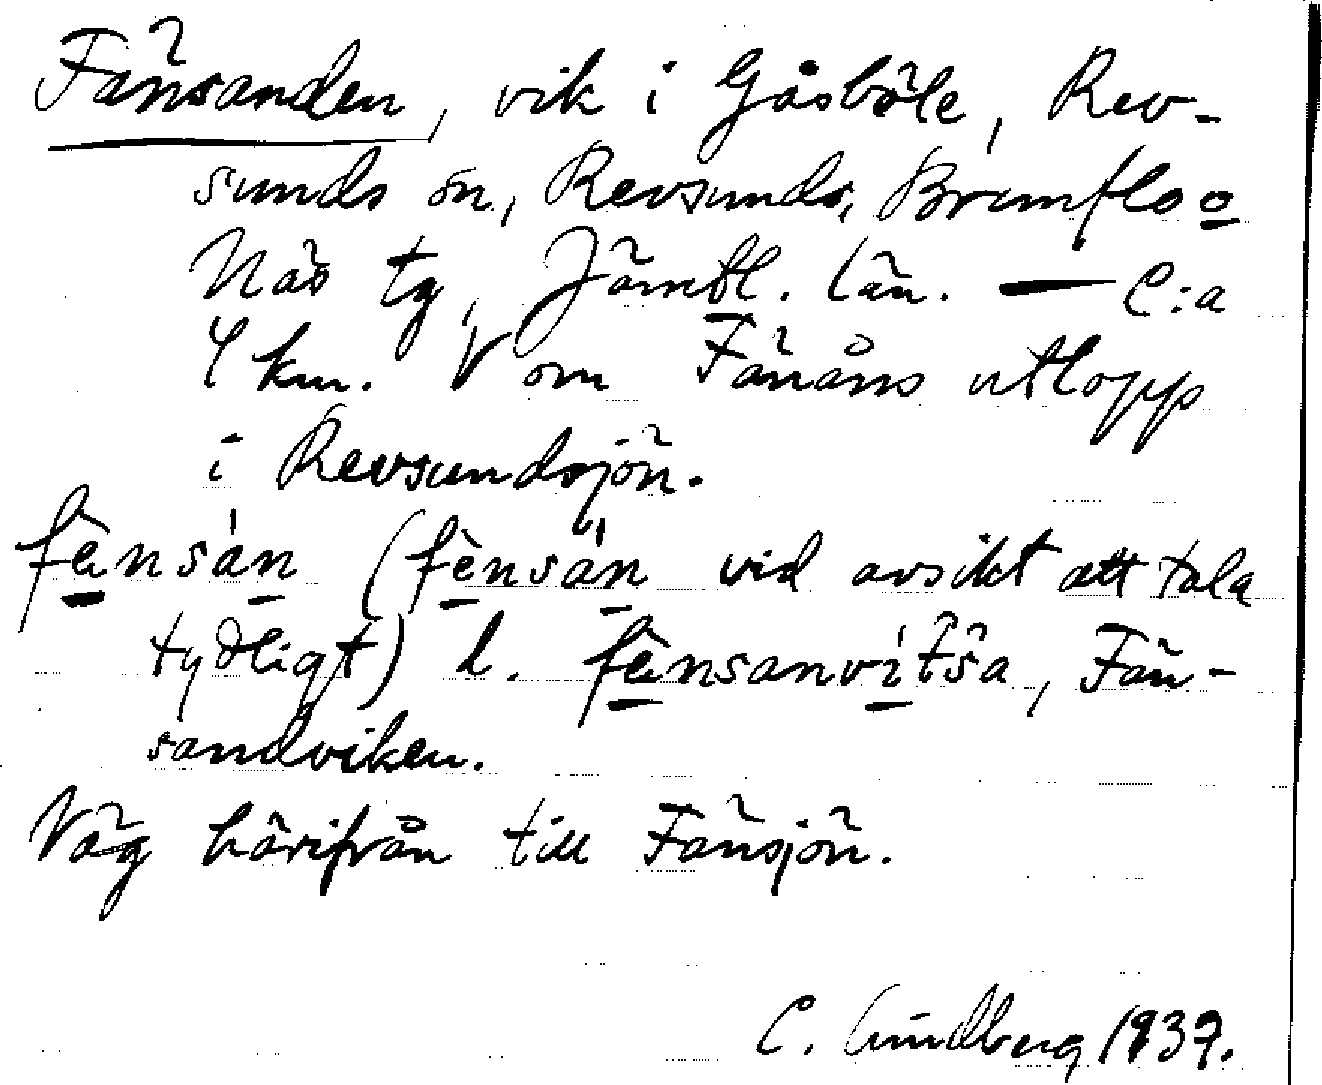 Fänsanden, vik i Gåsböle, Rev-
sunds sn, Revsunds, Brunflo o
Näs tg, Jämtl. län. — C:a
4 km. V om Fänåns utlopp
i Revsundsjön.
fènsán (fènsán vid avsikt att tala
tydligt) l. fènsanvítša, Fän-
sandviken.
Väg härifrån till Fänsjön.
C. Lindberg 1939.